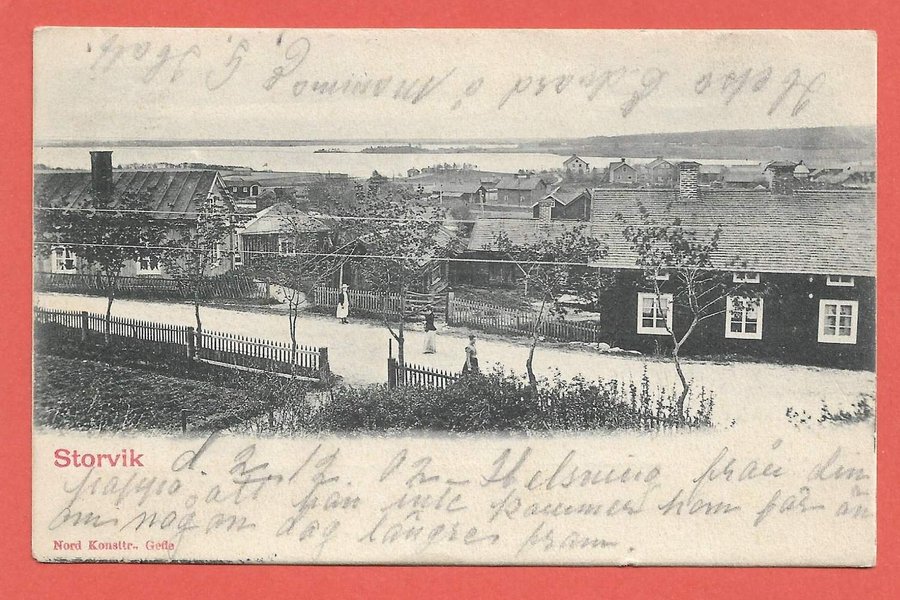 Helsa Edvard o Mamma
Storvik
d. 2. 12. 02. Helsning från din
pappa att han inte kommer hem får än
om någon dag längre fram.
Nord Konsttr.. Gefle